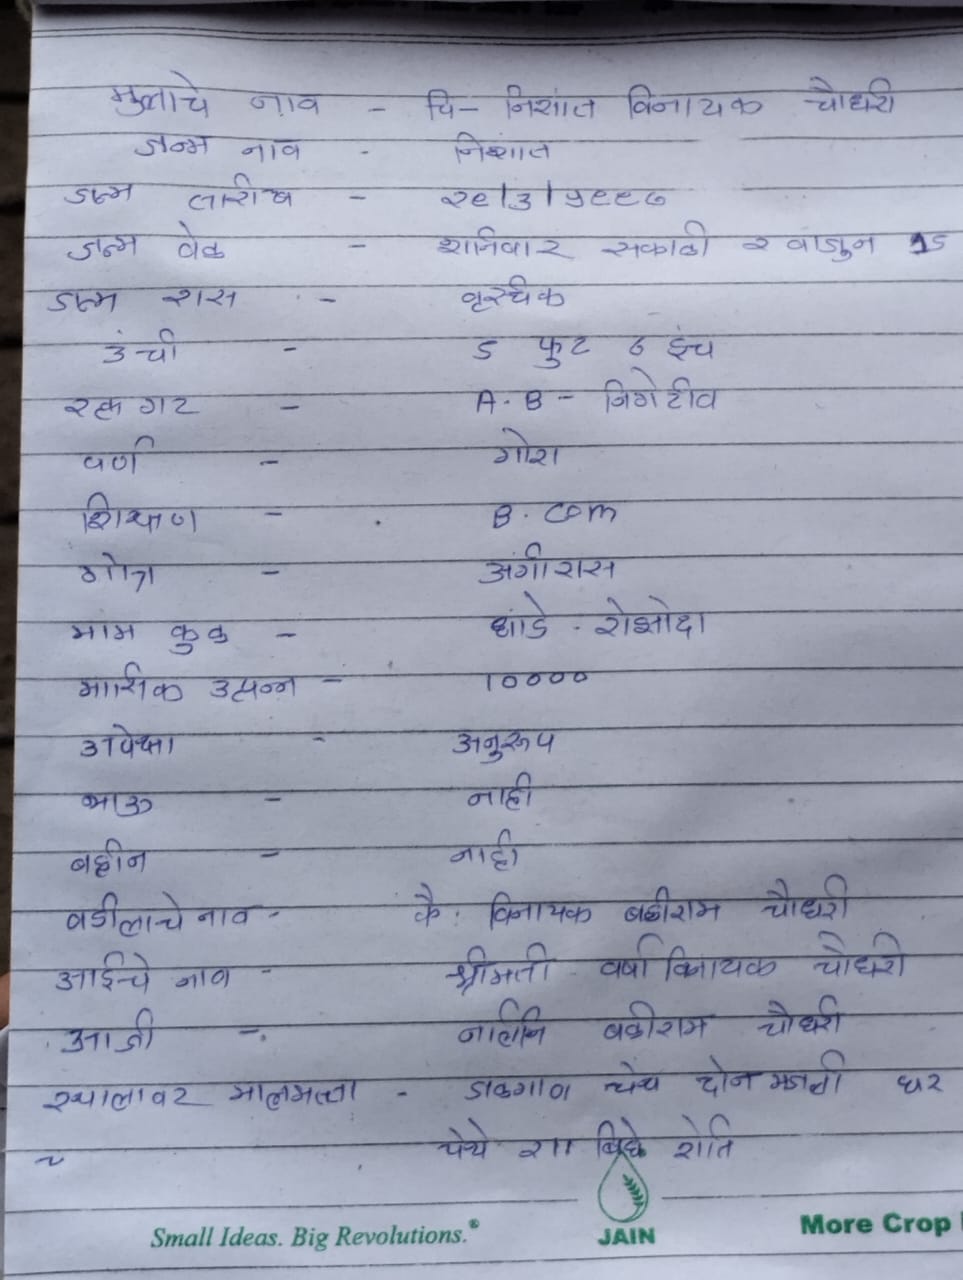 मुलाचे नाव - चि- निशांत विनायक चौधरी
जन्म नाव - निशांत
जन्म तारीख - २९/३/१९९७
जन्म वेळ - शनिवार सकाळी २ वाजून १५
जन्म रास - वृश्चिक
उंची - ५ फुट ८ इंच
रक्त गट - A.B - निगेटीव
वर्ण - गोरा
शिक्षण - B.com
गोत्र - अंगीरास
मामा कुळ - धांडे - रोझोदा
मासिक उत्पन्न - 10000
अपेक्षा - अनुरूप
भाऊ - नाही
बहीन - नाही
वडीलाचे नाव - कै. विनायक बळीराम चौधरी
आईचे नाव - श्रीमती वर्षा विनायक चौधरी
आजी - नलिनि बळीराम चौधरी
स्थालावर मालमत्ता - जळगाव येथे दोन मजली घर
येथे २॥ बिघे शेति
Small Ideas. Big Revolutions.®
JAIN
More Crop